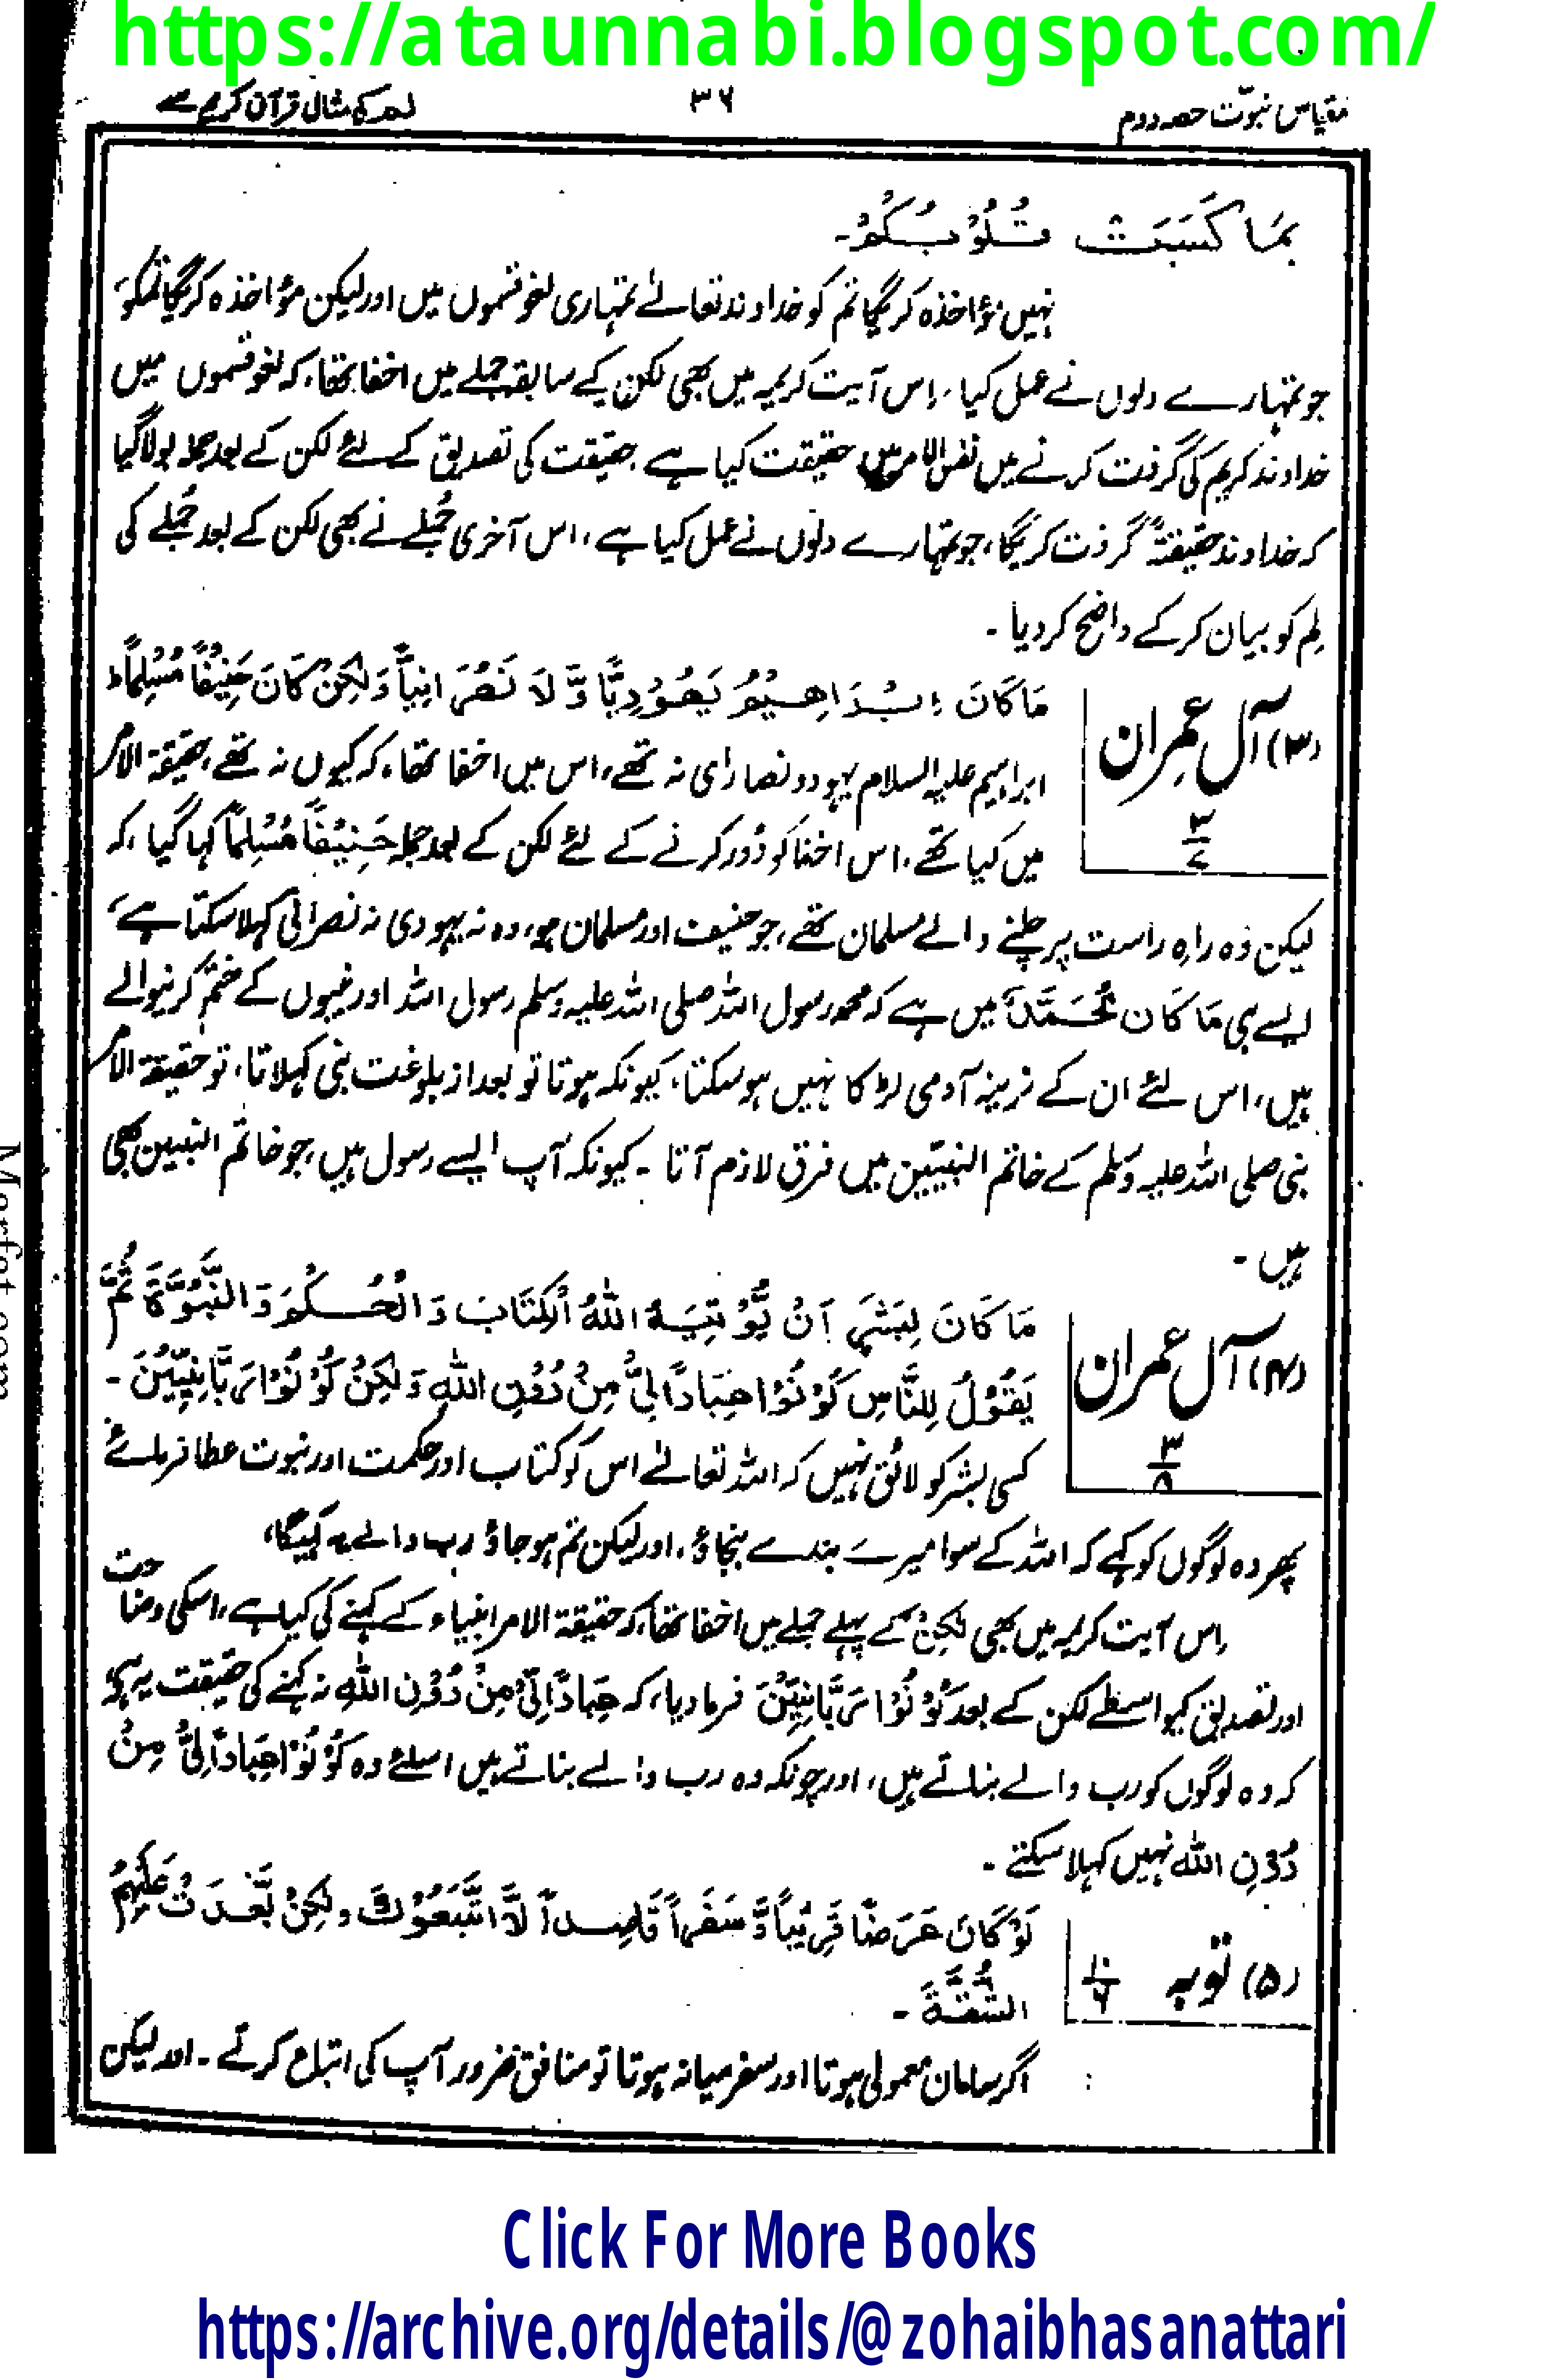 https://ataunnabi.blogspot.com/
مقیاس نبوّت حصہ دوم
۳۶
لم کی مثال قرآن کریم سے
بِمَا كَسَبَتْ قُلُوْبُكُمْ۔
نہیں مؤاخذہ کریگا تم کو خداوند تعالےٰ تمہاری لغو قسموں میں اور لیکن مؤاخذہ کریگا تمکو
جو تمہارے دلوں نے عمل کیا ، اِس آیت کریمہ میں بھی لٰکن کے سابقہ جملے میں اخفا تھا ، کہ لغو قسموں میں
خداوند کریم کی گرفت کرنے میں نفس الامر میں حقیقت کیا ہے حقیقت کی تصدیق کے لئے لکن کے بعد جملہ بولا گیا
کہ خداوند حقیقتہً گرفت کریگا ، جو تمہارے دلوں نے عمل کیا ہے ، اس آخری جُملے نے بھی لکن کے بعد جُملے کی
لِم کو بیان کرکے واضح کر دیا ۔
(۳) آلِ عمران
۳/۷
مَا كَانَ اِبْرَاهِيْمُ يَهُوْدِيًّا وَّ لَا نَصْرَانِيًّا وَلٰكِنْ كَانَ حَنِيْفًا مُّسْلِمًا ط
ابراہیم علیہ السلام یہود و نصاریٰ نہ تھے ، اس میں اخفا تھا ، کہ کیوں نہ تھے ، حقیقۃ الامر
میں کیا تھے ، اس اخفا کو دُور کرنے کے لئے لکن کے بعد جملہ حَنِيْفًا مُّسْلِمًا کہا گیا ، کہ
لیکن وہ راہِ راست پر چلنے والے مسلمان تھے ، جو حنیف اور مسلمان ہو ، وہ نہ یہودی نہ نصرانی کہلا سکتا ہے ،
ایسے ہی مَا كَانَ مُحَمَّدٌ میں ہے کہ محمد رسول اللہ صلی اللہ علیہ وسلم رسول اللہ اور نبیوں کے ختم کرنیوالے
ہیں ، اس لئے ان کے نرینہ آدمی لڑکا نہیں ہو سکتا ، کیونکہ ہوتا تو بعد از بلوغت نبی کہلاتا ، تو حقیقۃ الامر
نبی صلی اللہ علیہ وسلم کے خاتم النبیّین میں فرق لازم آتا ۔ کیونکہ آپ ایسے رسول ہیں ، جو خاتم النبیین بھی
ہیں ۔
(۴) آلِ عمران
۳/۸
مَا كَانَ لِبَشَرٍ اَنْ يُّؤْتِيَهُ اللهُ الْكِتَابَ وَ الْحُكْمَ وَ النُّبُوَّةَ ثُمَّ
يَقُوْلَ لِلنَّاسِ كُوْنُوْا عِبَادًا لِّيْ مِنْ دُوْنِ اللهِ وَلٰكِنْ كُوْنُوْا رَبَّانِيِّيْنَ ۔
کسی بشر کو لائق نہیں کہ اللہ تعالےٰ اس کو کتاب اور حکمت اور نبوت عطا فرمائے
پھر وہ لوگوں کو کہے کہ اللہ کے سوا میرے بندے بنجاؤ ، اور لیکن تم ہو جاؤ رب والے یہ کہیگا ،
اِس آیت کریمہ میں بھی لٰكِنْ کے پہلے جملے میں اخفا تھا ، کہ حقیقۃ الامر انبیاء کے کہنے کی کیا ہے ، اسکی وضاحت
اور تصدیق کیواسطے لکن کے بعد كُوْنُوْا رَبَّانِيِّيْنَ فرمادیا ، کہ عِبَادًا لِّيْ مِنْ دُوْنِ اللهِ نہ کہنے کی حقیقت یہ ہی
کہ وہ لوگوں کو رب والے بناتے ہیں ، اور چونکہ وہ رب والے بناتے ہیں اسلئے وہ كُوْنُوْا عِبَادًا لِّيْ مِنْ
دُوْنِ اللهِ نہیں کہلا سکتے ۔
(۵) توبہ ۱۰/۶
لَوْ كَانَ عَرَضًا قَرِيْبًا وَّ سَفَرًا قَاصِدًا لَّاتَّبَعُوْكَ وَلٰكِنْ بَعُدَتْ عَلَيْهِمُ
الشُّقَّةُ ۔
اگر سامان معمولی ہوتا اور سفر میانہ ہوتا تو منافق ضرور آپ کی اتباع کرتے ۔ اور لیکن
Marfat.com
Click For More Books
https://archive.org/details/@zohaibhasanattari